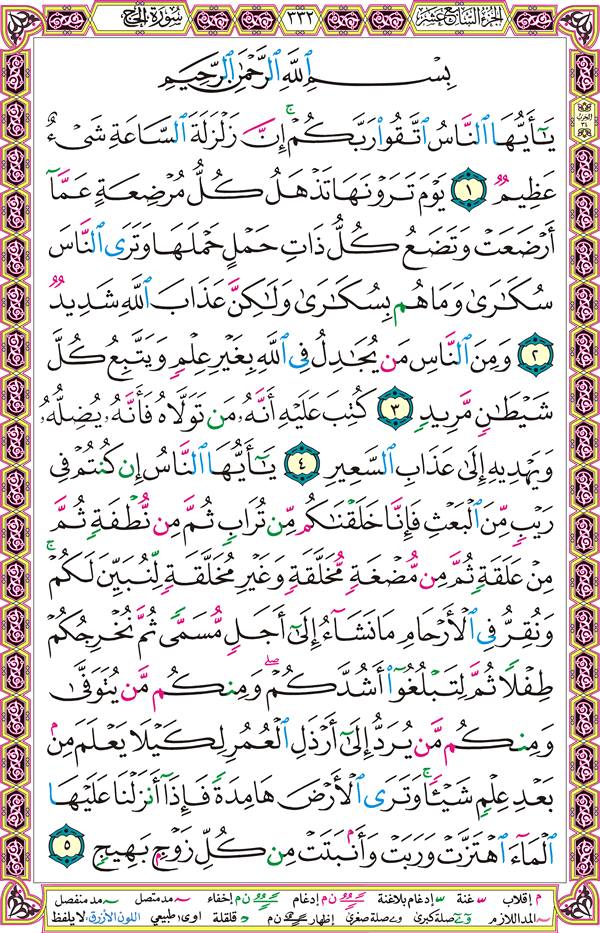 الجزء السابع عشر
٣٣٢
سورة الحج
الحزب
٣٤
بِسْمِ ٱللَّهِ ٱلرَّحْمَٰنِ ٱلرَّحِيمِ
يَٰٓأَيُّهَا ٱلنَّاسُ ٱتَّقُوا۟ رَبَّكُمْ ۚ إِنَّ زَلْزَلَةَ ٱلسَّاعَةِ شَىْءٌ
عَظِيمٌ ١ يَوْمَ تَرَوْنَهَا تَذْهَلُ كُلُّ مُرْضِعَةٍ عَمَّآ
أَرْضَعَتْ وَتَضَعُ كُلُّ ذَاتِ حَمْلٍ حَمْلَهَا وَتَرَى ٱلنَّاسَ
سُكَٰرَىٰ وَمَا هُم بِسُكَٰرَىٰ وَلَٰكِنَّ عَذَابَ ٱللَّهِ شَدِيدٌ
٢ وَمِنَ ٱلنَّاسِ مَن يُجَٰدِلُ فِى ٱللَّهِ بِغَيْرِ عِلْمٍ وَيَتَّبِعُ كُلَّ
شَيْطَٰنٍ مَّرِيدٍ ٣ كُتِبَ عَلَيْهِ أَنَّهُۥ مَن تَوَلَّاهُ فَأَنَّهُۥ يُضِلُّهُۥ
وَيَهْدِيهِ إِلَىٰ عَذَابِ ٱلسَّعِيرِ ٤ يَٰٓأَيُّهَا ٱلنَّاسُ إِن كُنتُمْ فِى
رَيْبٍ مِّنَ ٱلْبَعْثِ فَإِنَّا خَلَقْنَٰكُم مِّن تُرَابٍ ثُمَّ مِن نُّطْفَةٍ ثُمَّ
مِنْ عَلَقَةٍ ثُمَّ مِن مُّضْغَةٍ مُّخَلَّقَةٍ وَغَيْرِ مُخَلَّقَةٍ لِّنُبَيِّنَ لَكُمْ ۚ
وَنُقِرُّ فِى ٱلْأَرْحَامِ مَا نَشَآءُ إِلَىٰٓ أَجَلٍ مُّسَمًّى ثُمَّ نُخْرِجُكُمْ
طِفْلًا ثُمَّ لِتَبْلُغُوٓا۟ أَشُدَّكُمْ ۖ وَمِنكُم مَّن يُتَوَفَّىٰ
وَمِنكُم مَّن يُرَدُّ إِلَىٰٓ أَرْذَلِ ٱلْعُمُرِ لِكَيْلَا يَعْلَمَ مِنۢ
بَعْدِ عِلْمٍ شَيْـًٔا ۚ وَتَرَى ٱلْأَرْضَ هَامِدَةً فَإِذَآ أَنزَلْنَا عَلَيْهَا
ٱلْمَآءَ ٱهْتَزَّتْ وَرَبَتْ وَأَنۢبَتَتْ مِن كُلِّ زَوْجٍۭ بَهِيجٍ ٥
م إقلاب غنة إدغام بلاغنة ن م إدغام ن م إخفاء مد متصل مد منفصل
المد اللازم صلة كبرى صلة صغرى إظهار ن م قلقلة اوى طبيعي اللون الأزرق: لا يلفظ